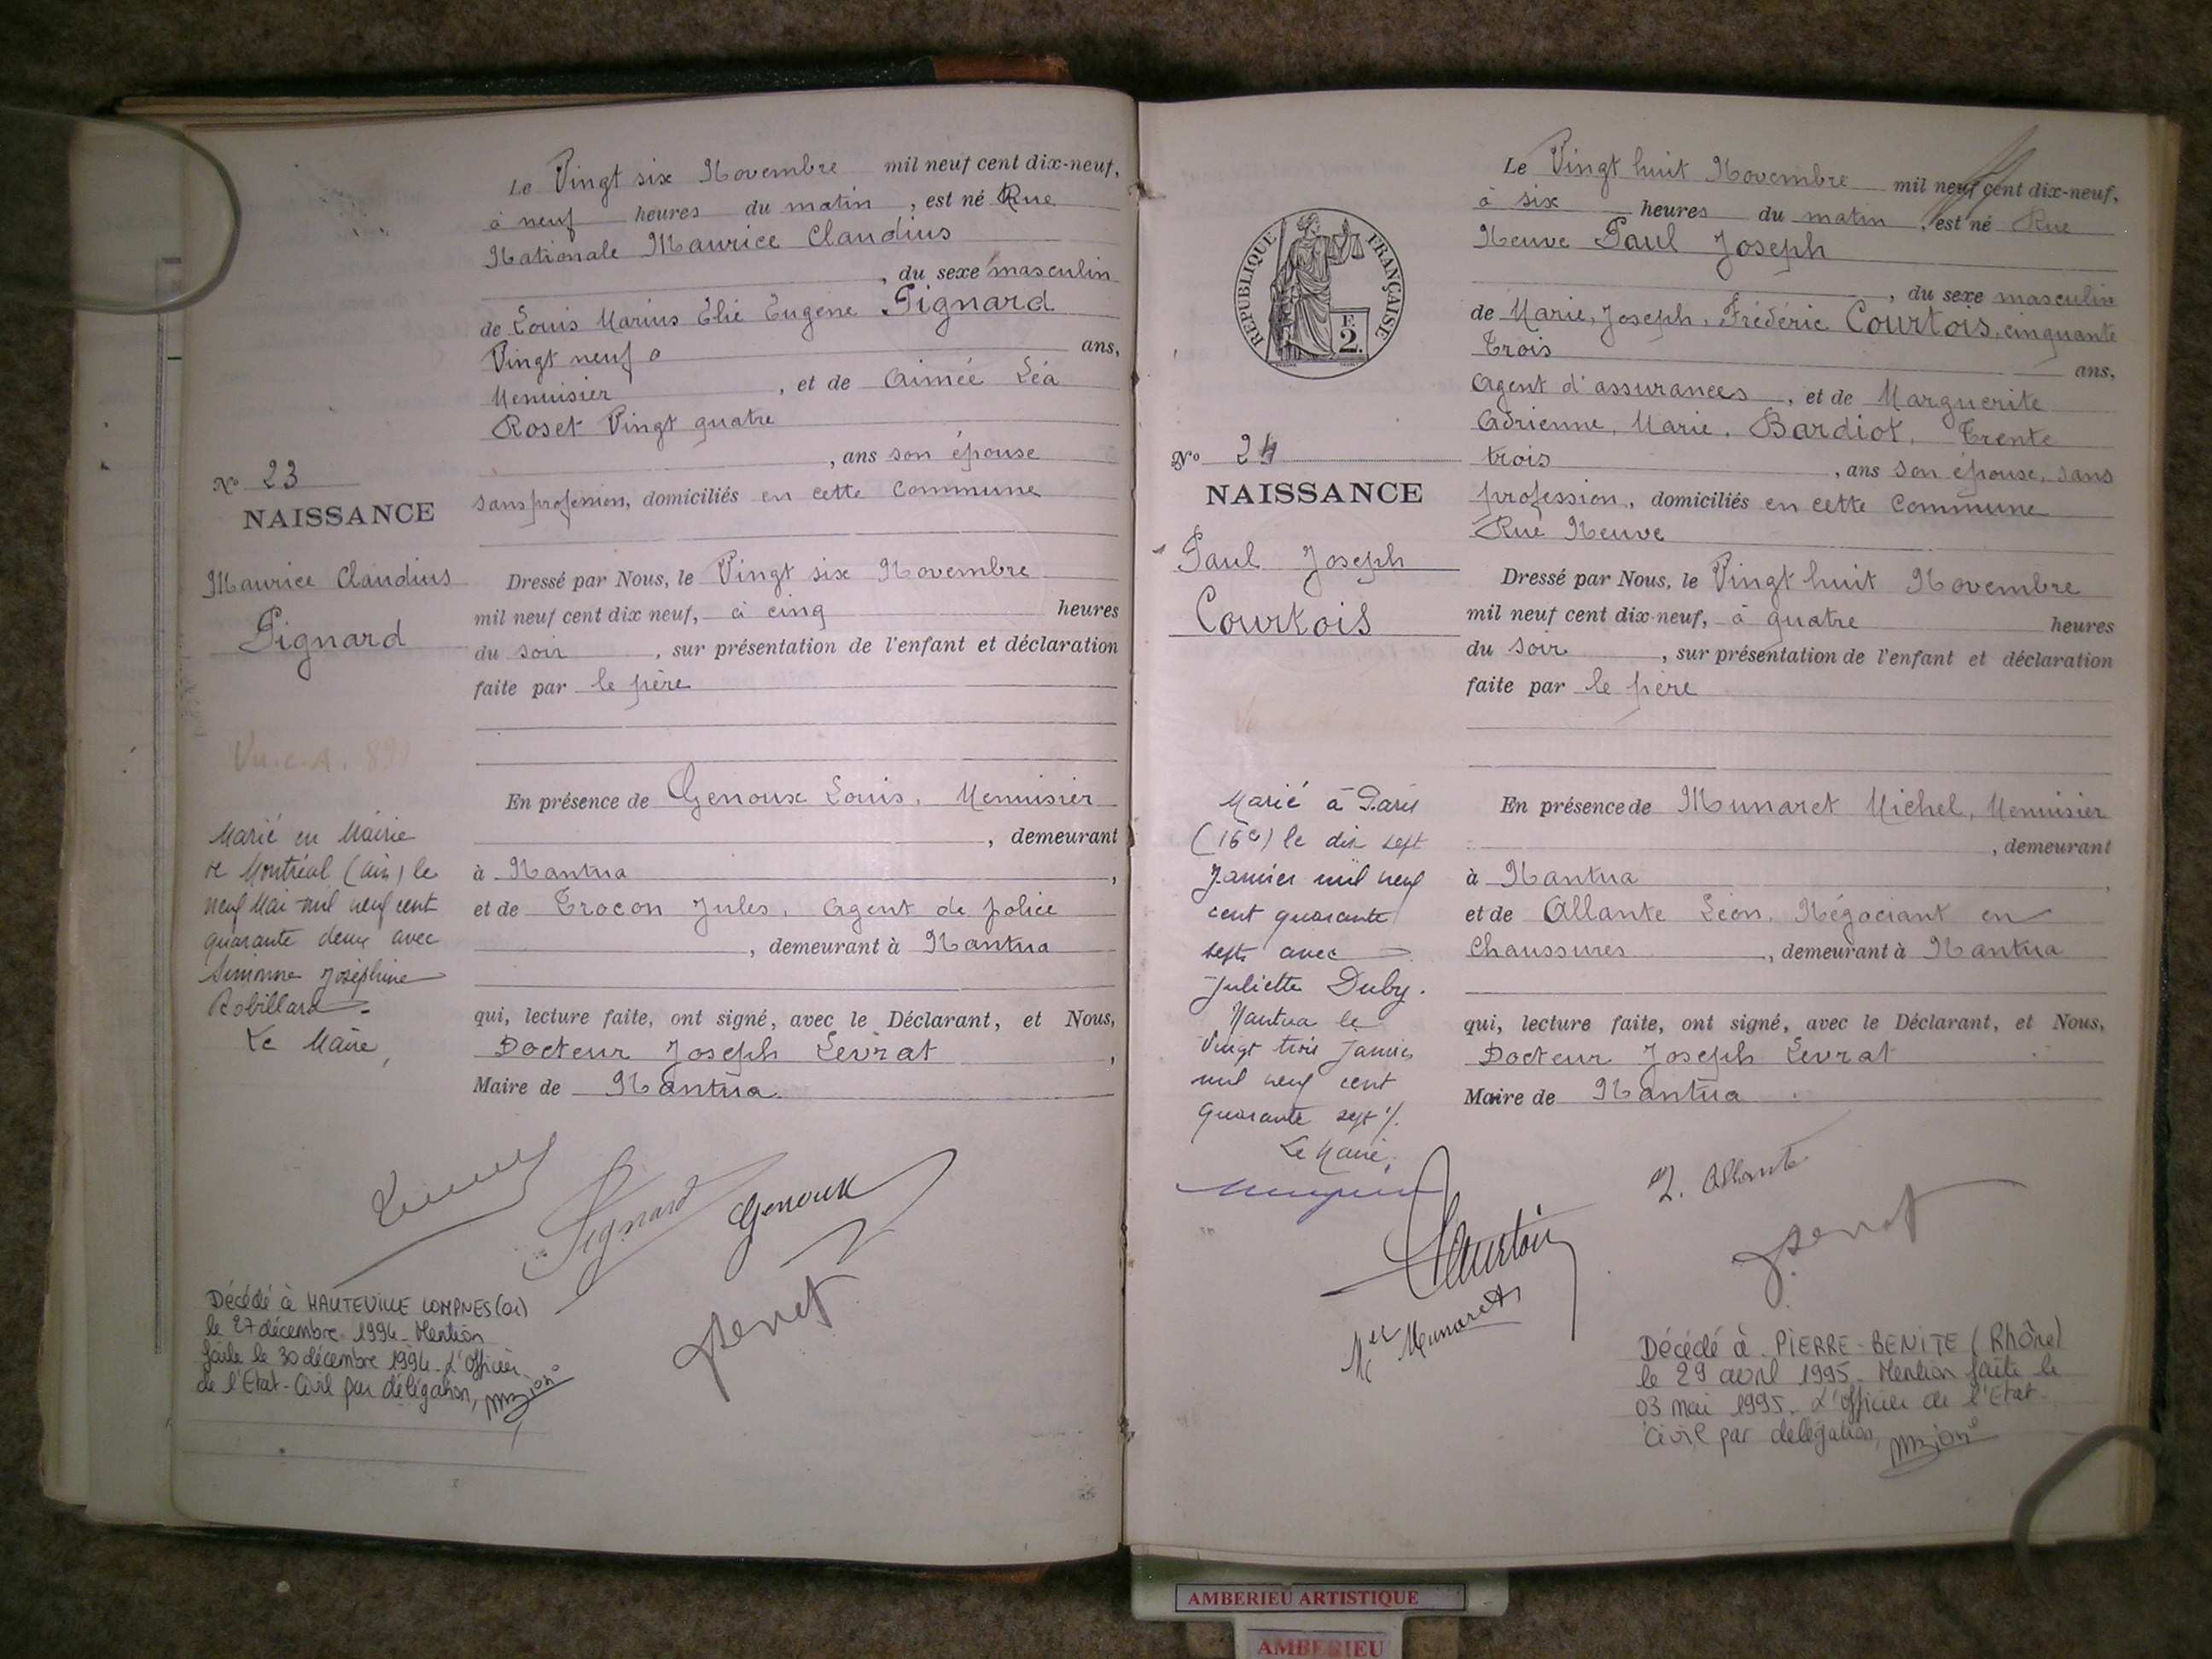 Le Vingt six Novembre mil neuf cent dix-neuf,
à neuf heures du matin, est né Rue
Nationale Maurice Claudius
, du sexe masculin
de Louis Marius Elie Eugène Pignard
Vingt neuf ans,
Menuisier, et de Aimée Léa
Roset Vingt quatre
, ans son épouse
sans profession, domiciliés en cette Commune
No 23
NAISSANCE
Maurice Claudius
Pignard
Dressé par Nous, le Vingt six Novembre
mil neuf cent dix neuf, à cinq heures
du soir, sur présentation de l'enfant et déclaration
faite par le père
En présence de Genoux Louis, Menuisier
, demeurant
à Nantua,
et de Trocon Jules, Agent de police
, demeurant à Nantua
qui, lecture faite, ont signé, avec le Déclarant, et Nous,
Docteur Joseph Levrat,
Maire de Nantua
Marié en Mairie
de Montréal (Ain) le
neuf Mai mil neuf cent
quarante deux avec
Simonne Joséphine
Robillard
Le Maire,
Pignard
Genoux
Décédé à HAUTEVILLE LOMPNES (01)
le 27 décembre 1994. Mention
faite le 30 décembre 1994. L'Officier
de l'Etat-Civil par délégation,
RÉPUBLIQUE FRANÇAISE
F.
2.
No 24
NAISSANCE
Paul Joseph
Courtois
Le Vingt huit Novembre mil neuf cent dix-neuf,
à six heures du matin, est né Rue
Neuve Paul Joseph
, du sexe masculin
de Marie, Joseph, Frédéric Courtois, cinquante
trois ans,
Agent d'assurances, et de Marguerite
Adrienne, Marie, Bardiot, Trente
trois, ans son épouse, sans
profession, domiciliés en cette Commune
Rue Neuve
Dressé par Nous, le Vingt huit Novembre
mil neuf cent dix-neuf, à quatre heures
du soir, sur présentation de l'enfant et déclaration
faite par le père
En présence de Munaret Michel, Menuisier
, demeurant
à Nantua,
et de Allante Léon, Négociant en
Chaussures, demeurant à Nantua
qui, lecture faite, ont signé, avec le Déclarant, et Nous,
Docteur Joseph Levrat
Maire de Nantua
Marié à Paris
(16e) le dix sept
Janvier mil neuf
cent quarante
sept avec
Juliette Duby.
Nantua le
Vingt trois Janvier
mil neuf cent
quarante sept ./.
Le Maire,
L. Allante
Courtois
Mel Munaret
Décédé à PIERRE-BENITE (Rhône)
le 29 avril 1995. Mention faite le
03 mai 1995. L'Officier de l'Etat-
Civil par délégation,
AMBERIEU ARTISTIQUE
AMBERIEU